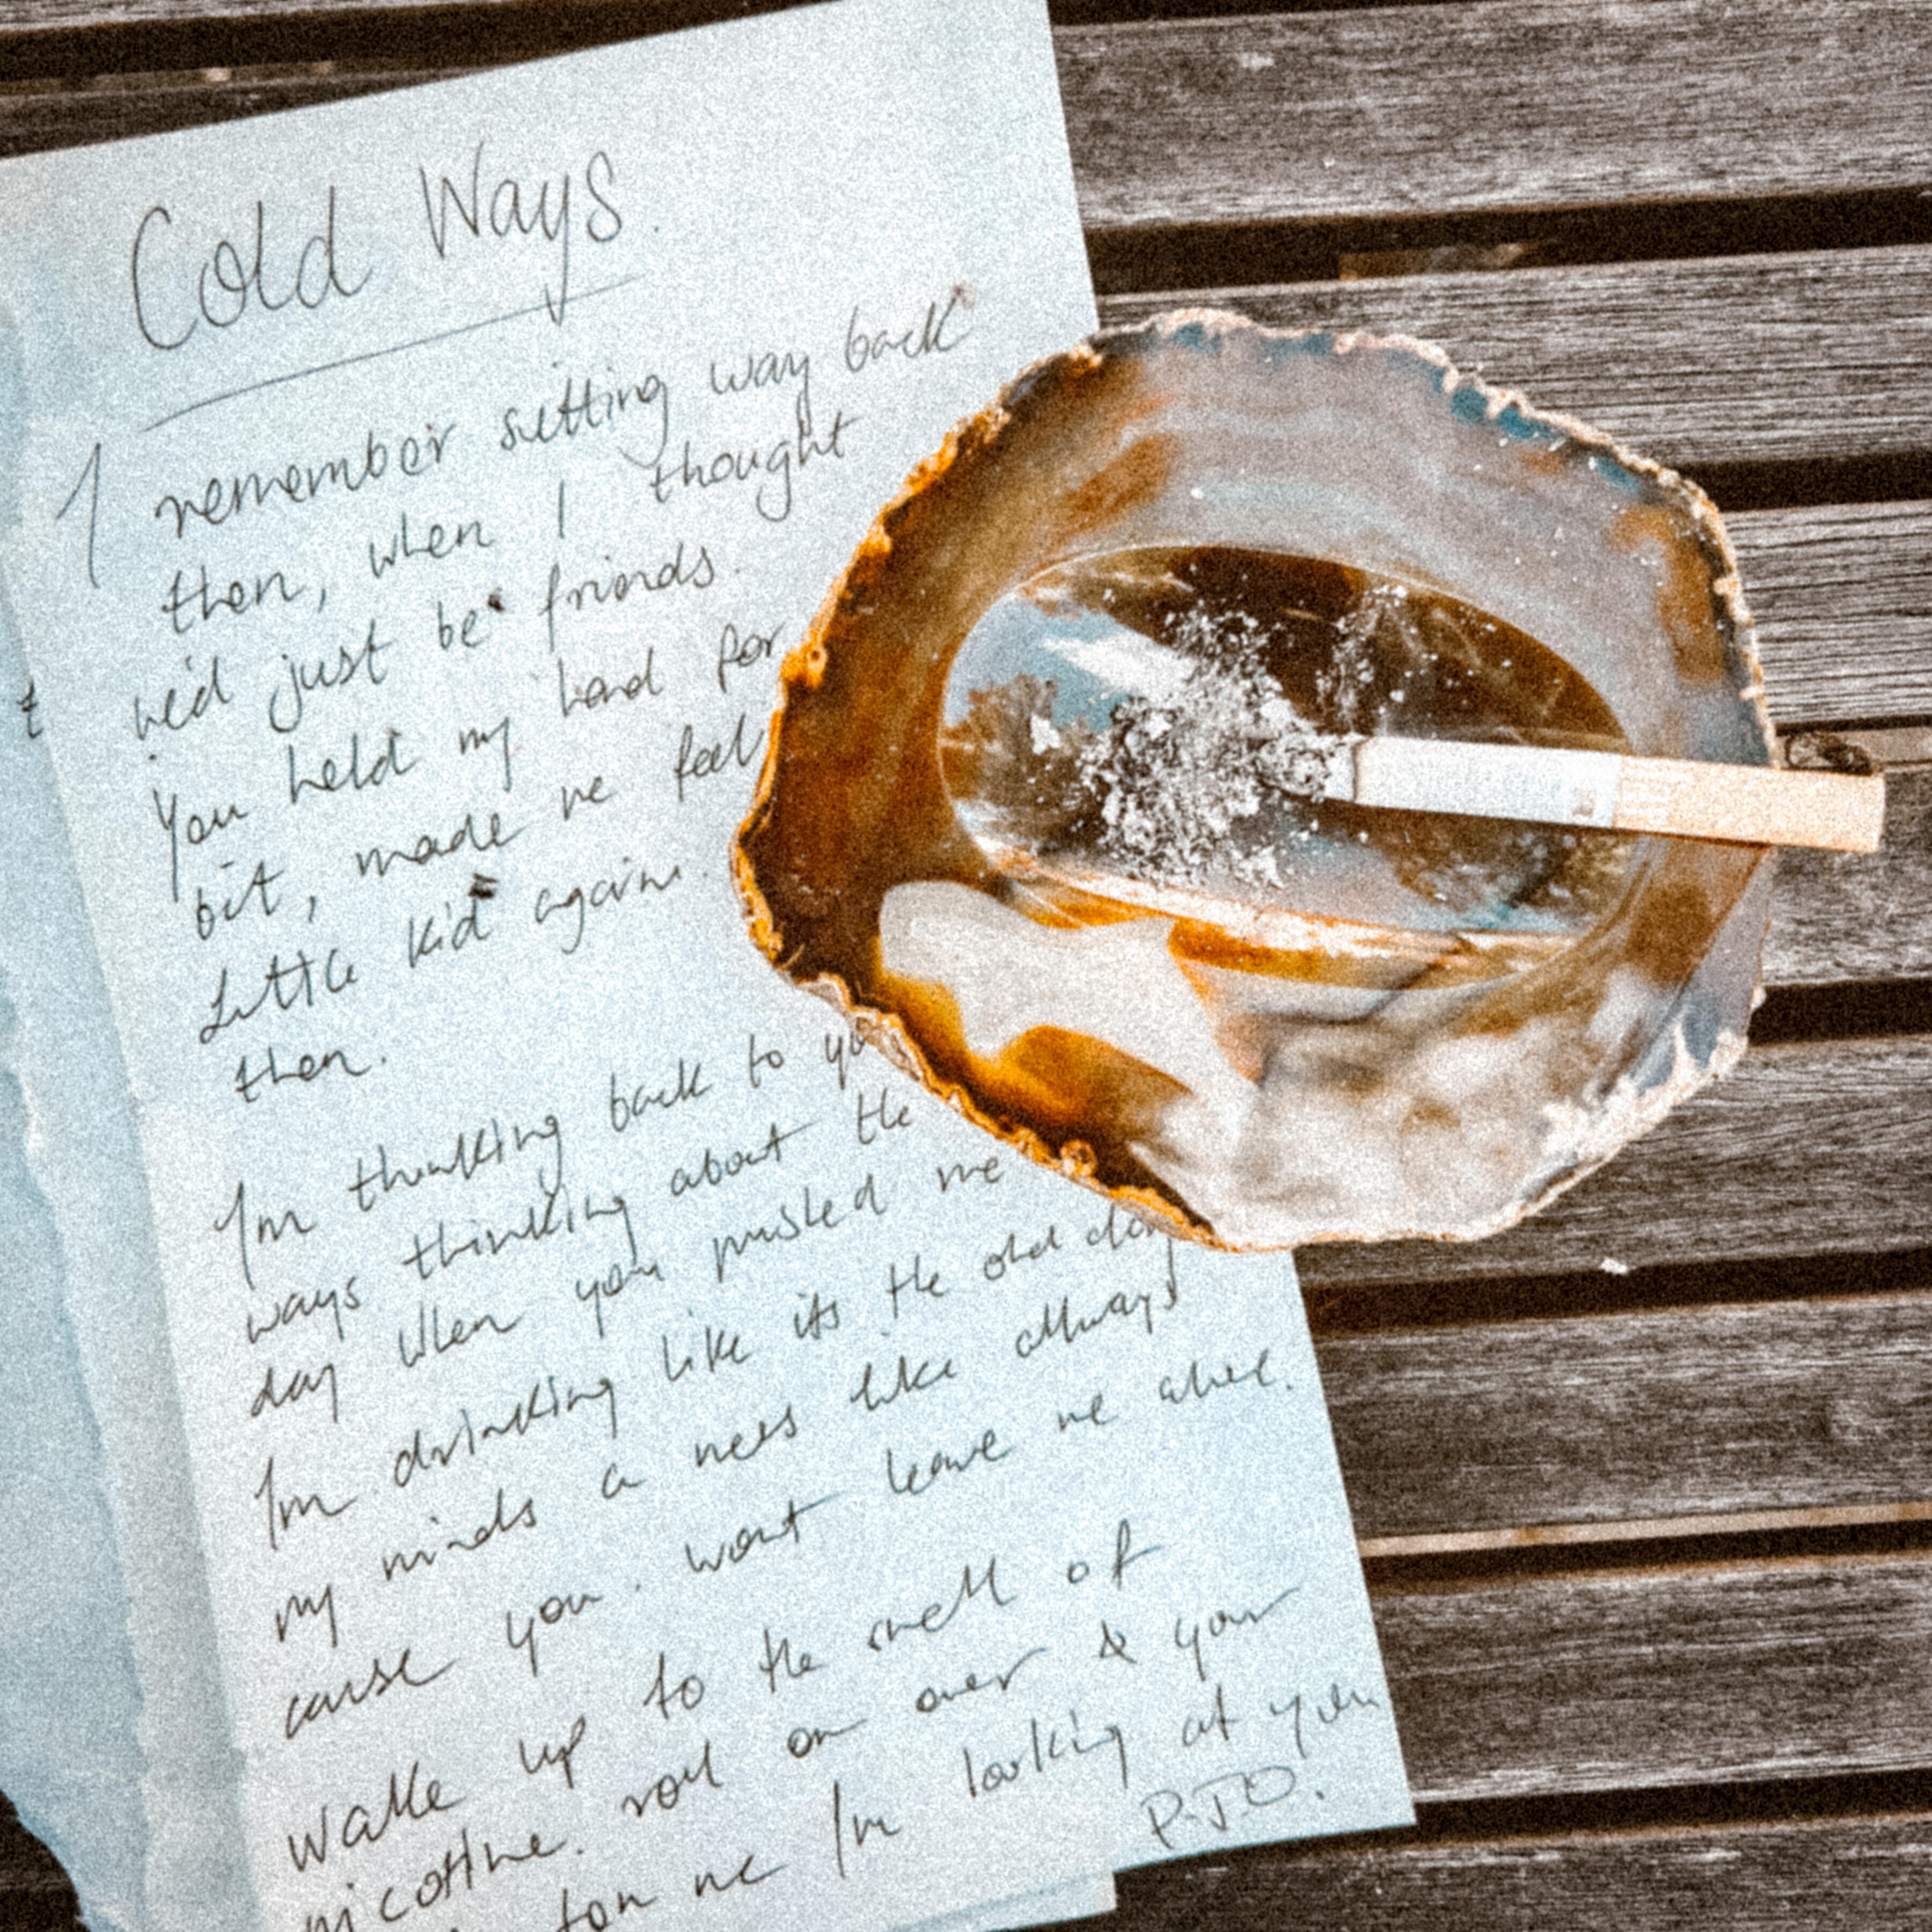 Cold Ways
I remember sitting way back
then, when I thought
we'd just be friends.
You held my hand for
bit, made me feel
Little kid again.
then.
Im thinking back to
ways thinking about the
day when you pushed me
Im drinking like its the old
my minds a mess like allways
cause you wont leave me
Wake up to the smell of
nicotine. roll on over & your
me Im looking at you
P.T.O.